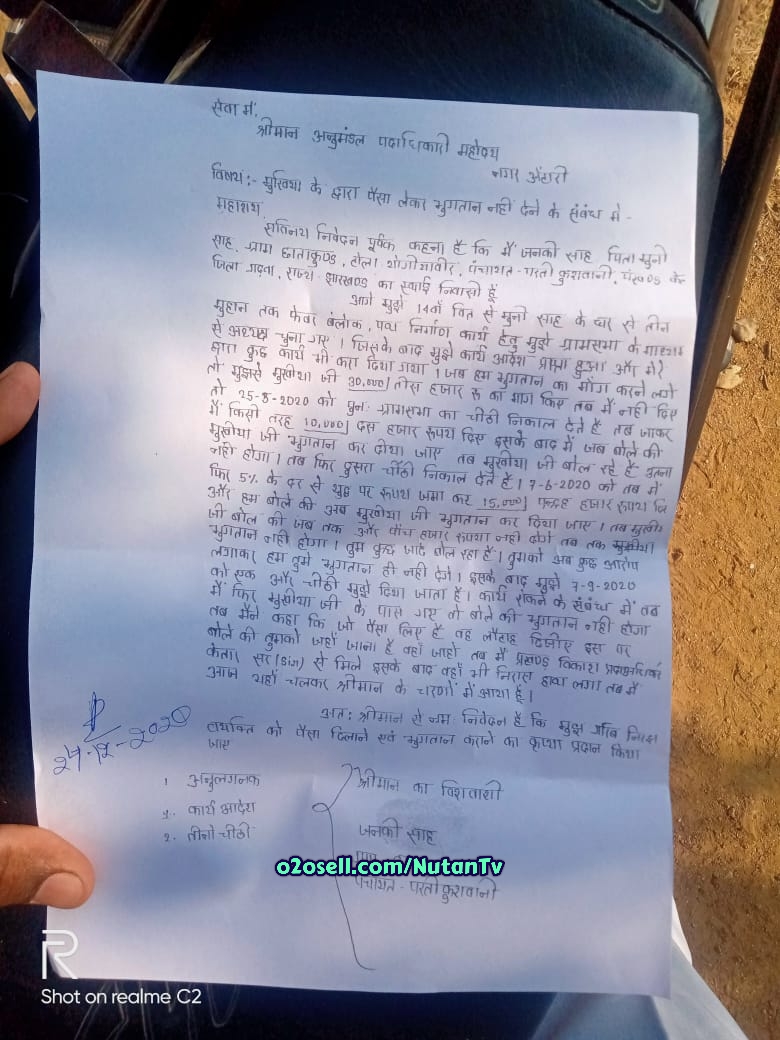 सेवा में,
श्रीमान अनुमंडल पदाधिकारी महोदय
नगर ऊंटारी
विषय:- मुखिया के द्वारा पैसा लेकर भुगतान नहीं देने के संबंध में -
महाशय,
सविनय निवेदन पूर्वक कहना है कि मैं जनकी साह पिता मुनी
साह, ग्राम छाताकुण्ड, टोला योगीयावीर, पंचायत- परती कुशवानी, प्रखण्ड केतार
जिला गढ़वा, राज्य झारखण्ड का स्थाई निवासी हूँ
आगे मुझे 14वाँ वित से मुनी साह के घर से तीन
मुहान तक फेवर ब्लोक, पथ निर्माण कार्य हेतु मुझे ग्रामसभा के माध्यम
से अध्यक्ष चुना गए। जिसके बाद मुझे कार्य आदेश प्राप्त हुआ और मेरे
द्वारा कुछ कार्य भी करा दिया गया। जब हम भुगतान का माँग करने लगे
तो मुझसे मुखीया जी 30,000/ तीस हजार रू का माग किए तब मैं नही दिए
तो 25-8-2020 को पुनः ग्रामसभा का चीठी निकाल देते है तब जाकर
मैं किसी तरह 10,000/ दस हजार रूपया दिए इसके बाद में जब बोले की
मुखीया जी भुगतान कर दीया जाए तब मुखीया जी बोल रहे है उतना
नही होगा। तब फिर दुसरा चीठी निकाल देते है। 7-6-2020 को तब में
फिर 5% के दर से रूपया जमा कर 15,000/ पन्द्रह हजार रूपया
और हम बोले की अब मुखीया जी भुगतान कर दिया जाए। तब मुखीया
जी बोल की जब तक और पाँच हजार रूपया नही देगे तब तक मुखीया
भुगतान नही होगा। तुम कुछ जादे बोल रहा है। तुमको अब कुछ आरोप
लगाकर हम तुमे भुगतान ही नही देगे। इसके बाद मुझे 7-9-2020
को एक और चीठी मुझे दिया जाता है। कार्य रोकने के संबंध में तब
मैं फिर मुखीया जी के पास गए तो बोले की भुगतान नही होगा
तब मैने कहा कि जो पैसा लिए है वह लौटाह दिजीए इस पर
बोले की तुमको जहाँ जाना है वहाँ जाहो तब मै प्रखण्ड विकाश
केतार सर (Sir) से मिले इसके बाद वहाँ भी निराश हाथ लगा तब मै
आज यहाँ चलकर श्रीमान के चरणों में आया हूँ।
अतः श्रीमान से नम्र निवेदन है कि मुझ गरिब
व्यक्ति को पैसा दिलाने एवं भुगतान कराने का कृपा प्रदान किया
जाए
24-12-2020
1 अनुलगनक
2. कार्य आदेश
2. तीनो चीठी
श्रीमान का विशवाशी
जनकी साह
o2osell.com/NutanTv
पंचायत - परती कुशवानी
R
Shot on realme C2